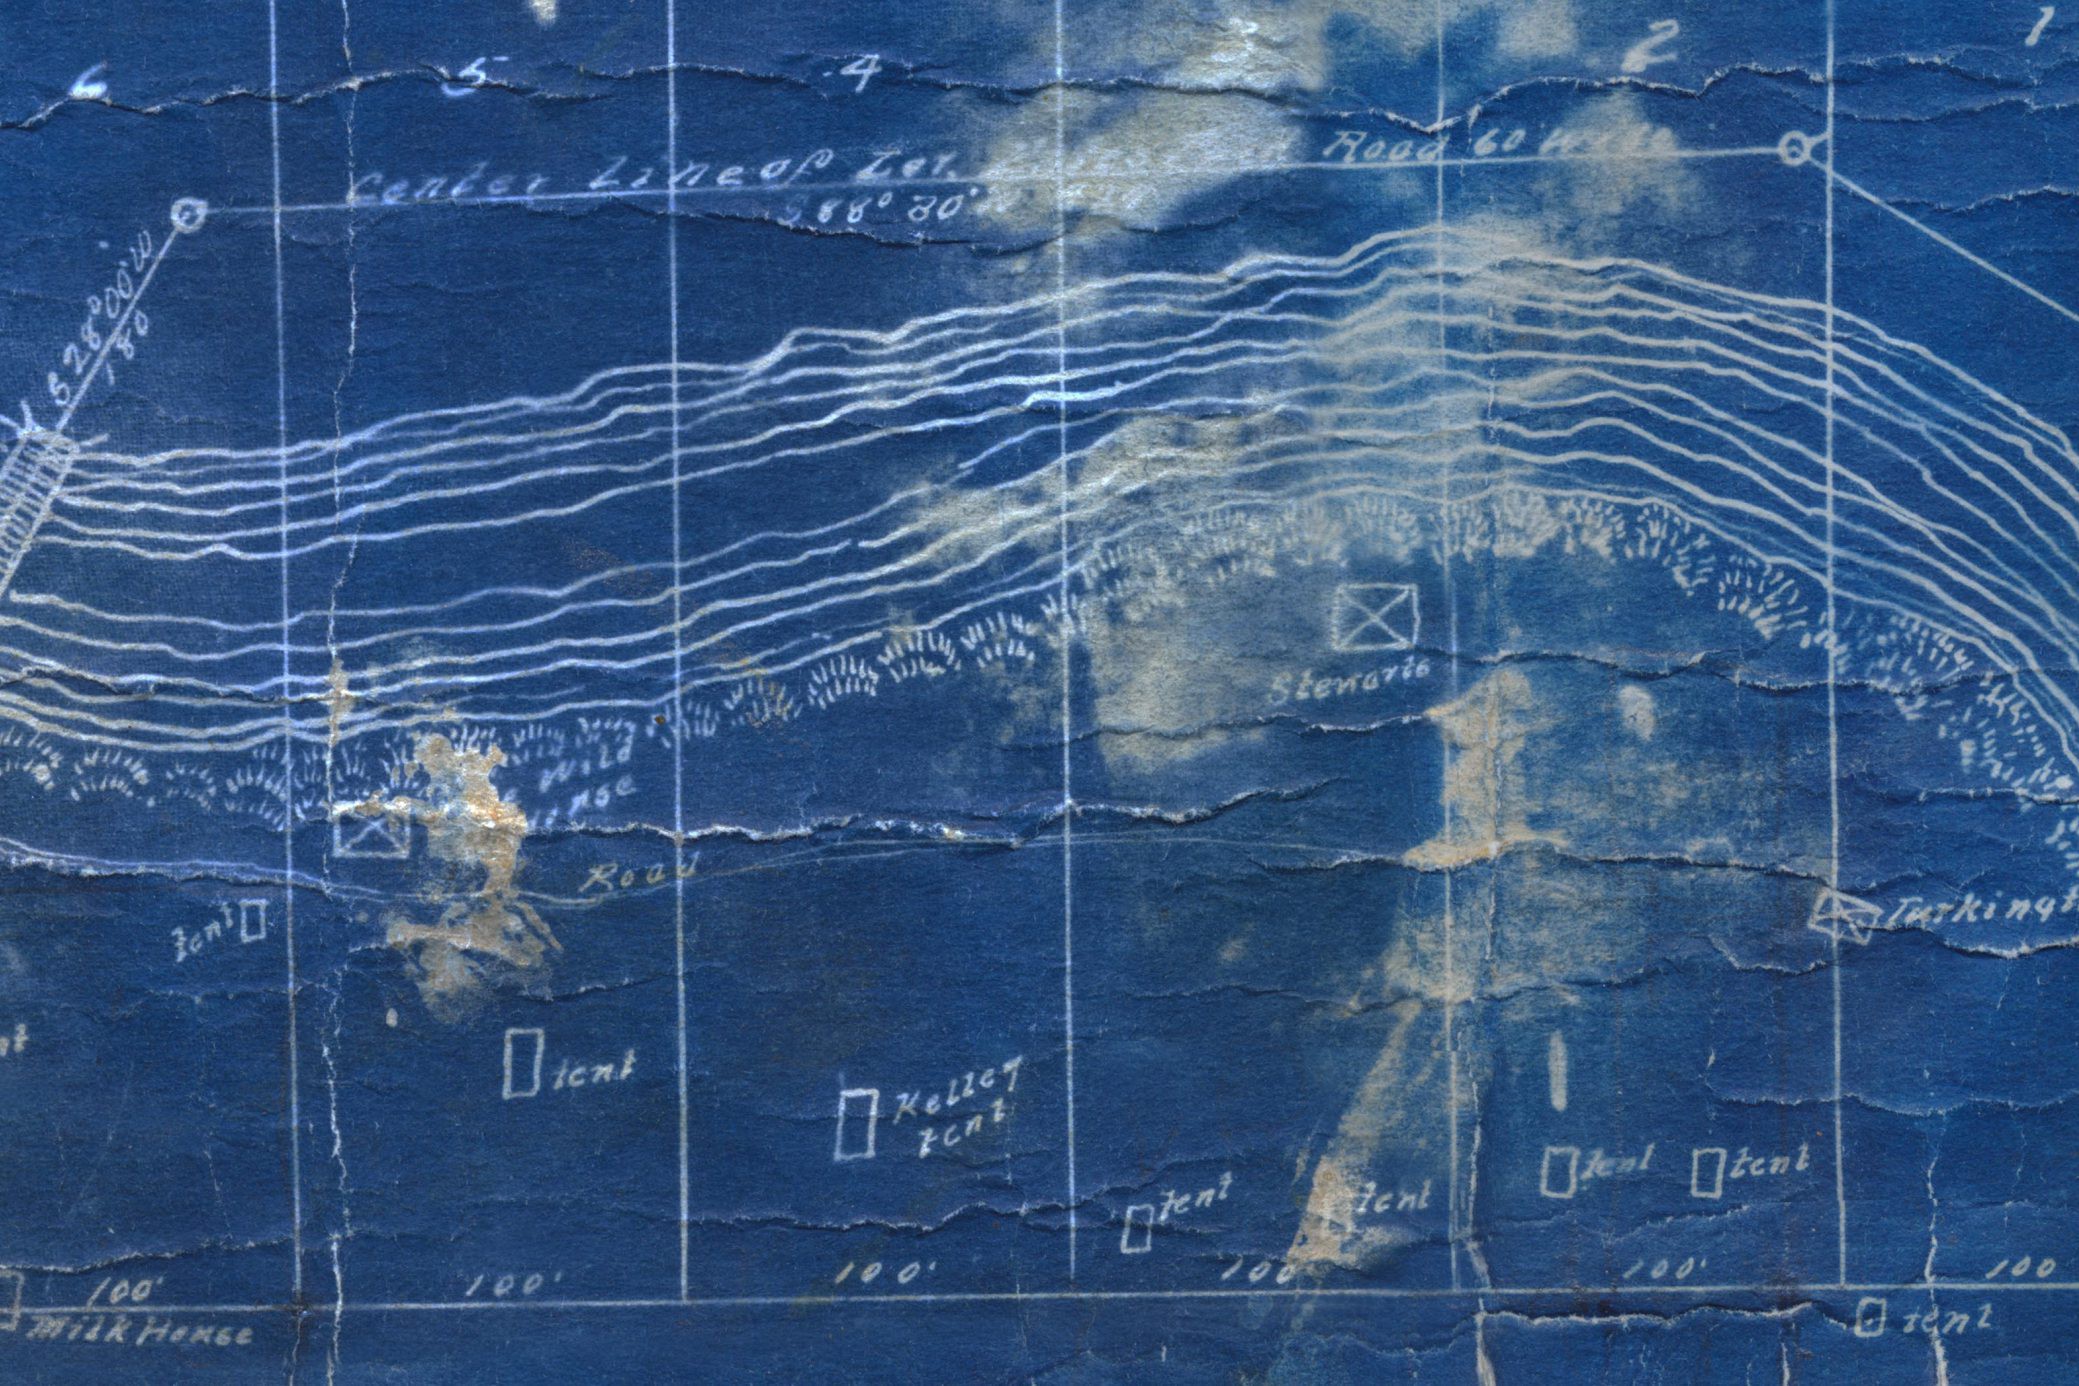 6 5 4 3 2 1
Center Line of Ter. Road 60' Wide
S 88° 30'
S 28° 00' W
180
Stewarts
Wild
Road
tent
Turkingt
nt
tent
Kelley
tent
tent
tent
tent
tent
100' 100' 100' 100' 100' 100
Milk House
tent